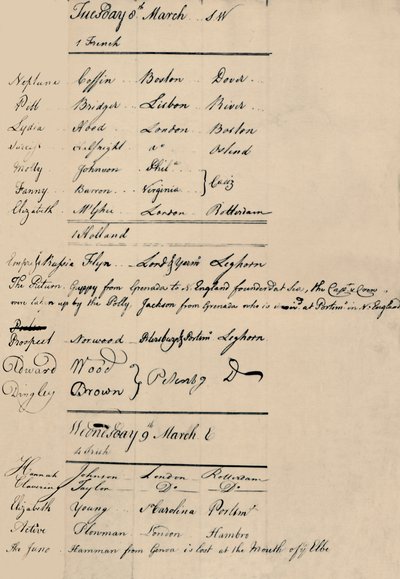 Tuesday 8th March SW
1 French
Neptune Coffin Boston Dover
Pitt Bridger Lisbon River
Lydia Hood London Boston
do Ostend
Molly Johnson Phila
Fanny Barron Virginia } Cadiz
Elizabeth McGhee London Rotterdam
1 Holland
Russia Flyn Lond & Yarmo Leghorn
The Guppy from Grenada to N England founder'd at Sea, the Capt & Crew
were taken up by the Polly Jackson from Grenada who is at Portsmo in N England
Prospect Norwood Petersburg & Portsmo Leghorn
Edward Wood
Dingley Brown } Petersbg Do
Wednesday 9th March E
Hannah Johnson London Rotterdam
Clavering Taylor Do Do
Elizabeth Young So Carolina Portsmo
Active Plowman London Hambro
The Juno Hamman from Genoa is lost at the Mouth of ye Elbe